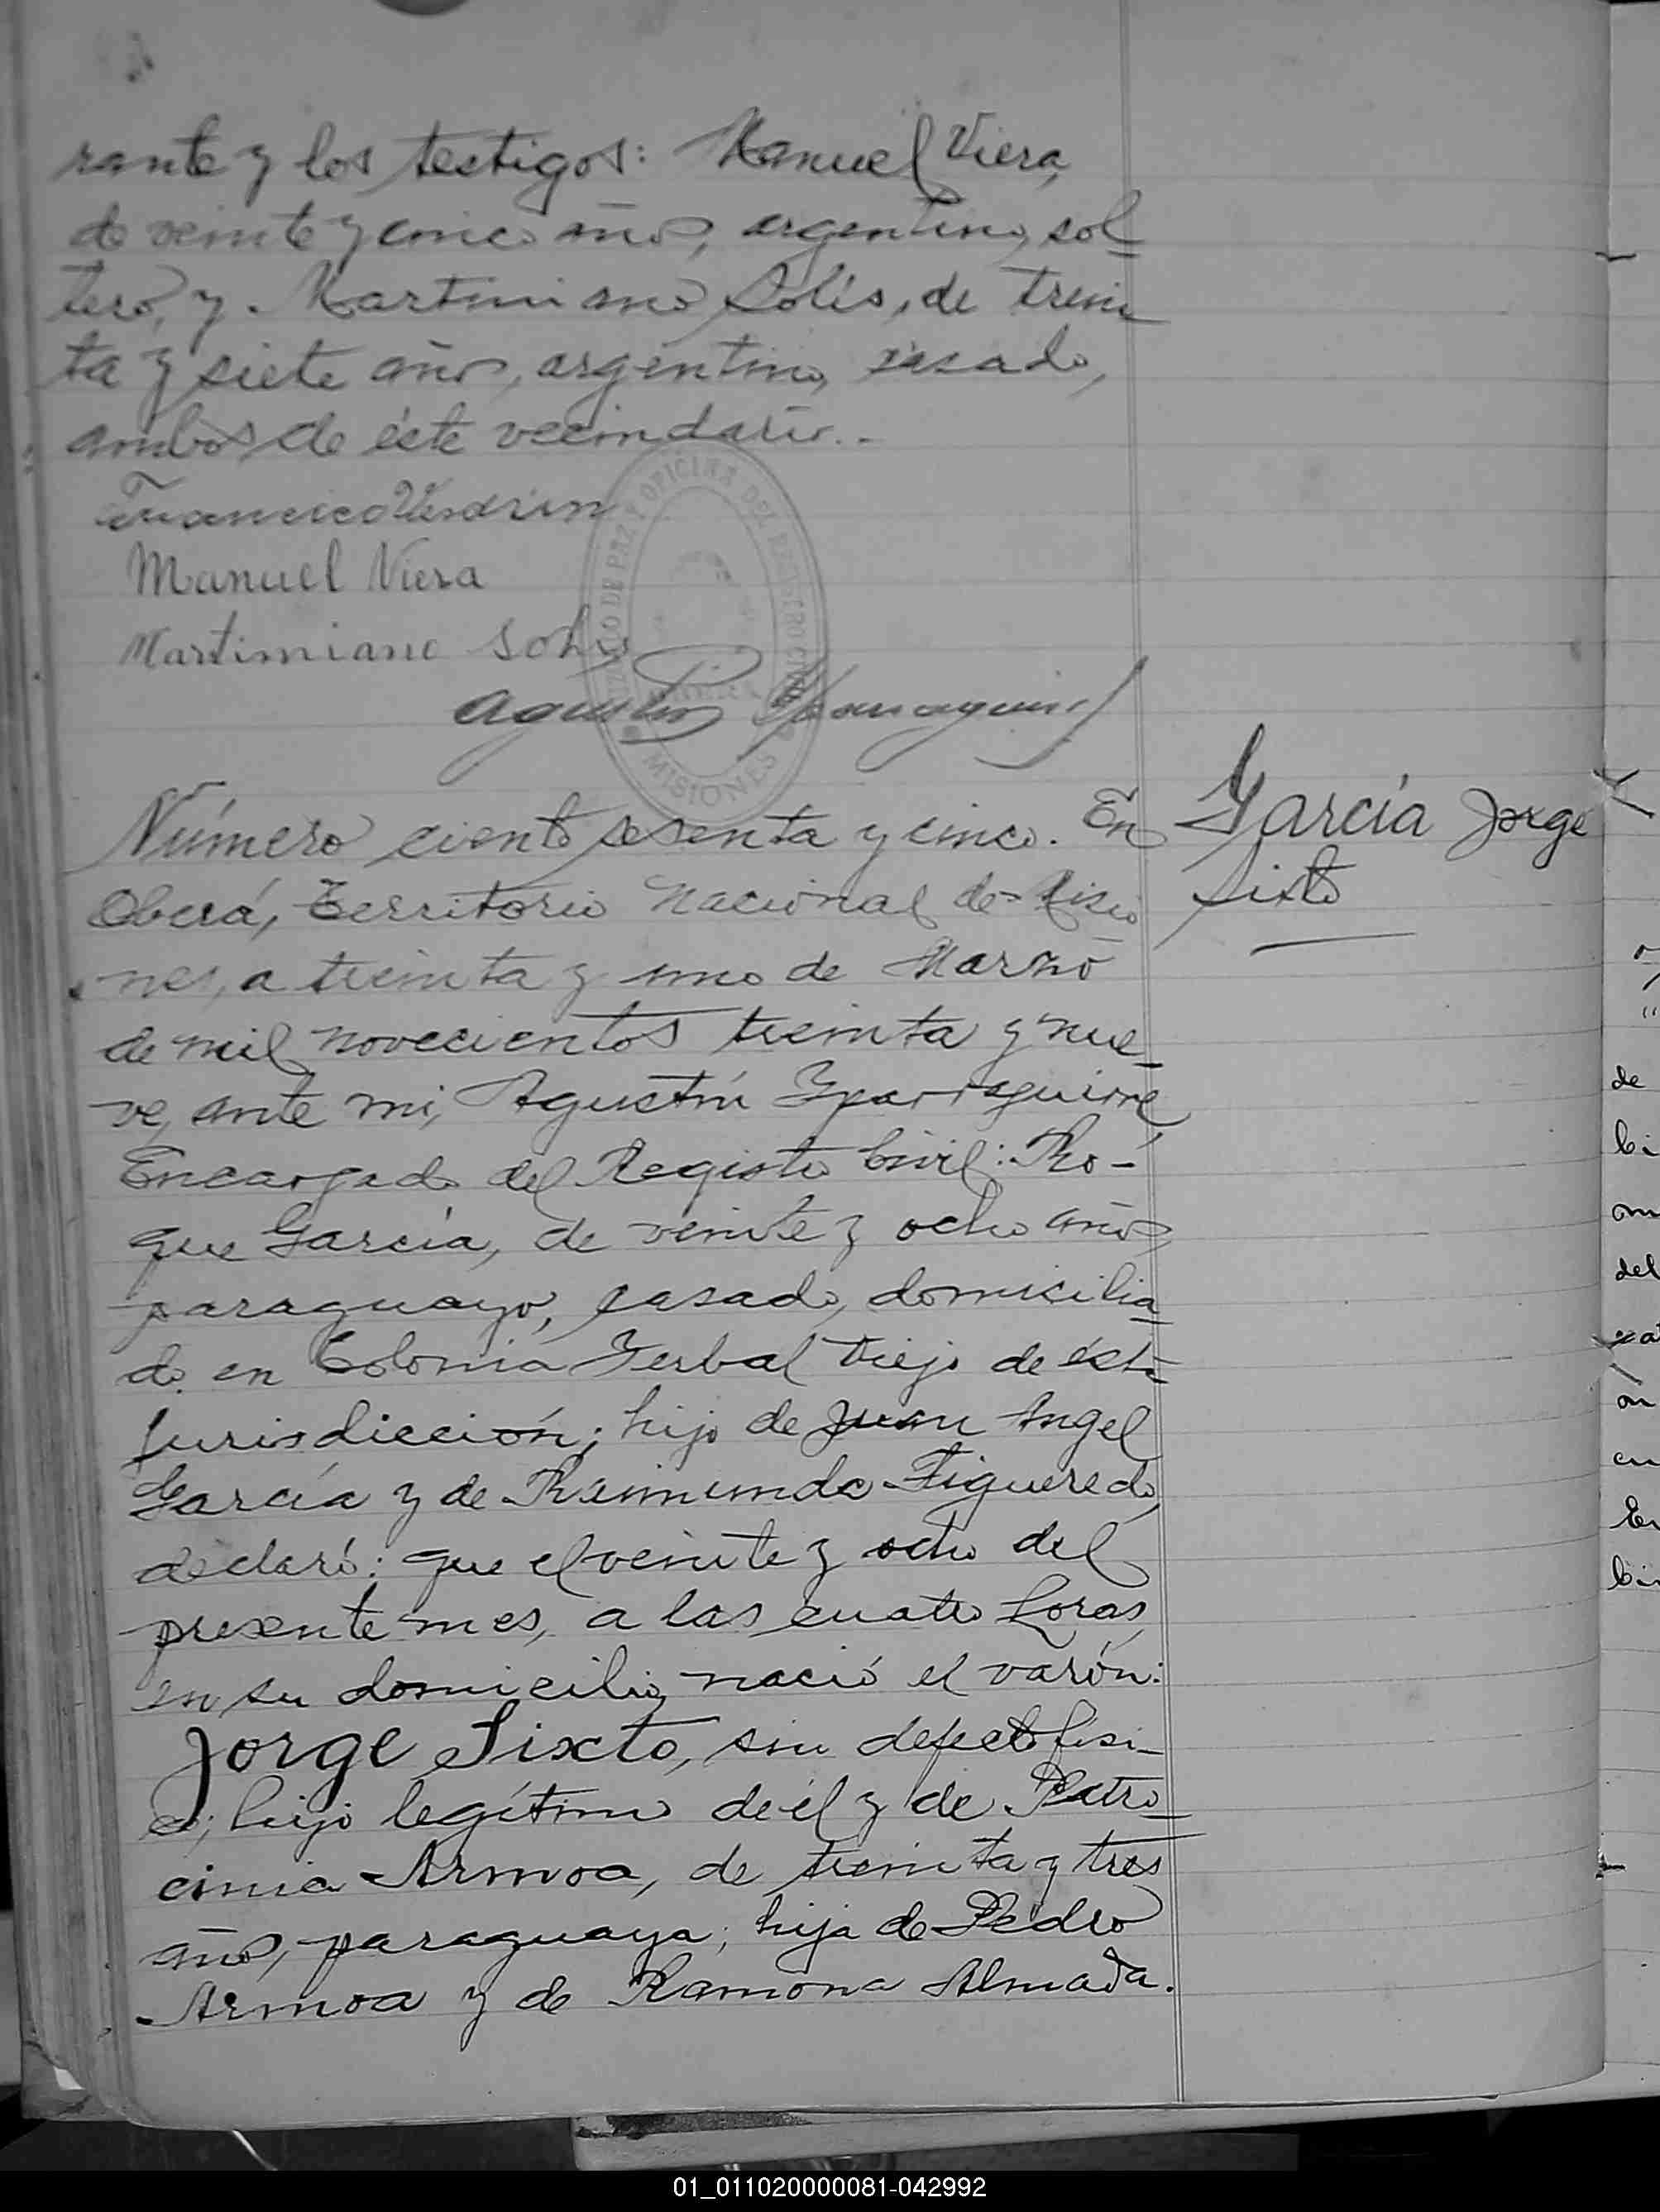 rante y los testigos: Manuel Viera,
de veinte y cinco años, argentino, sol-
tero, y Martimiano Solís, de trein-
ta y siete años, argentino, casado,
ambos de éste vecindario.-
Francisco
Manuel Viera
Martimiano Solis
JUZGADO DE PAZ Y OFICINA DEL REGISTRO CIVIL
MISIONES
Agustin Yparraguirre
Número ciento sesenta y cinco. En
García Jorge
Sixto
Oberá, Territorio Nacional de Misio
nes, a treinta y uno de Marzo
de mil novecientos treinta y nue-
ve, ante mi, Agustín Yparraguirre,
Encargado del Registro Civil: Ro-
que García, de veinte y ocho años,
paraguayo, casado, domicilia-
do en Colonia Yerbal Viejo de ésta
jurisdicción; hijo de Juan Angel
García y de Raimunda Figueredo,
declaró: que el veinte y ocho del
presente mes, a las cuatro horas,
en su domicilio, nació el varón:
Jorge Sixto, sin defecto físi-
co; hijo legítimo de él y de Patro-
cinia Armoa, de treinta y tres
años, paraguaya; hija de Pedro
Armoa y de Ramona Almada.
de
del
01_011020000081-042992